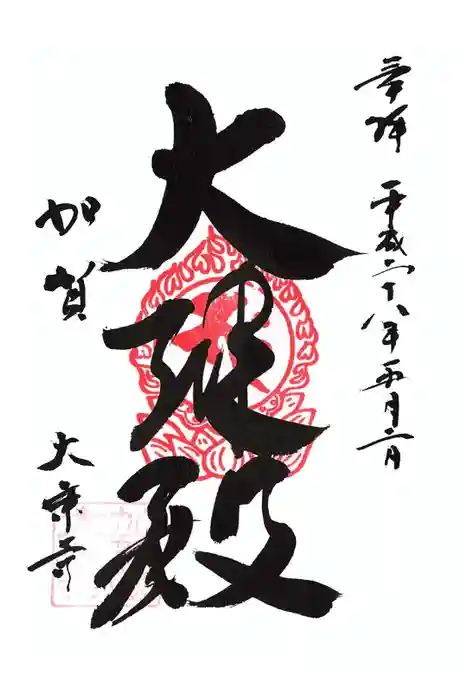 奉拝　平成二十八年五月二日
大雄殿
加賀　大乗寺